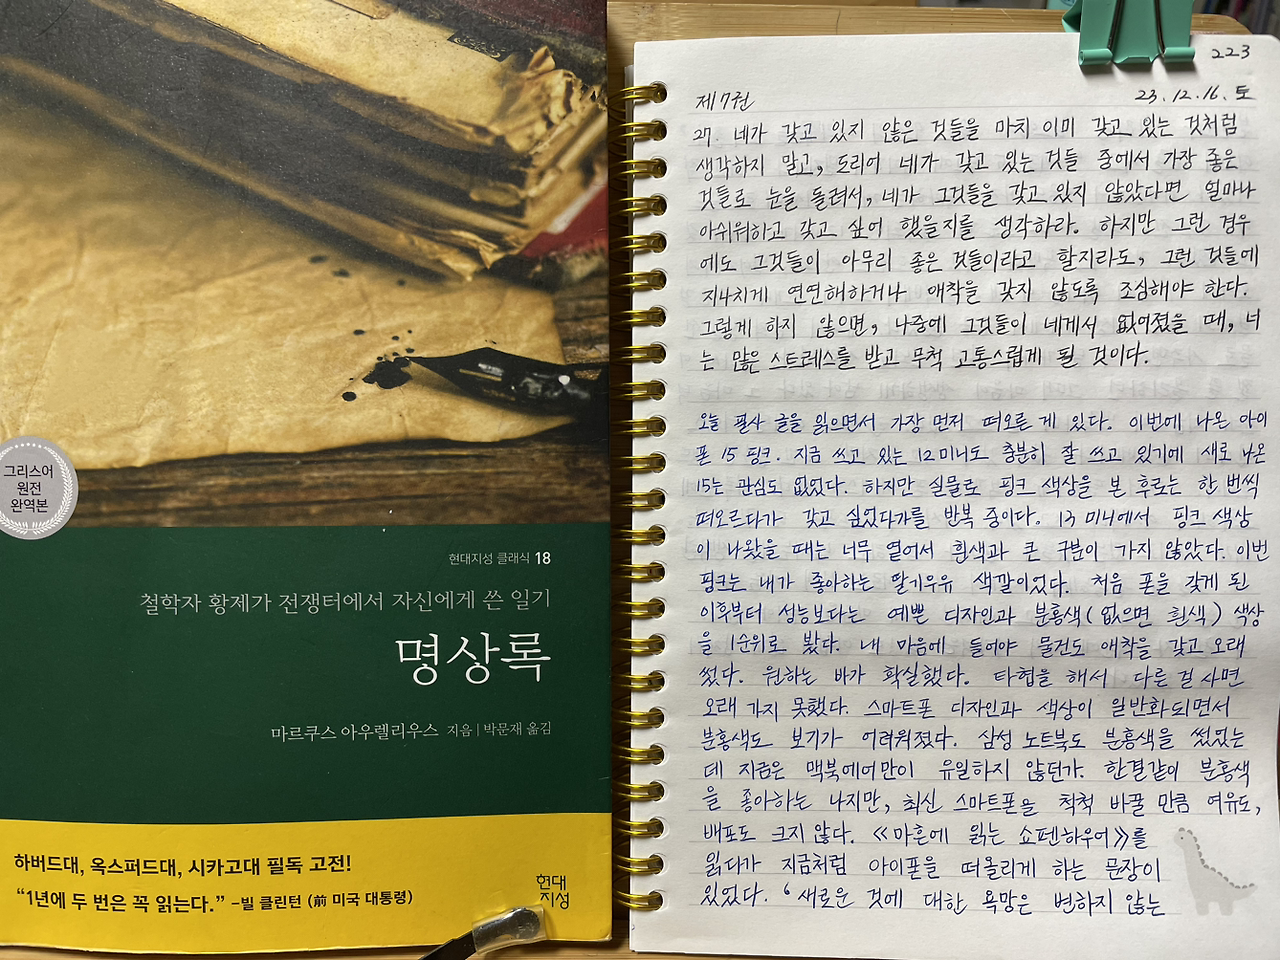 그리스어
원전
완역본
현대지성 클래식 18
철학자 황제가 전쟁터에서 자신에게 쓴 일기
명상록
마르쿠스 아우렐리우스 지음 | 박문재 옮김
하버드대, 옥스퍼드대, 시카고대 필독 고전!
“1년에 두 번은 꼭 읽는다.” –빌 클린턴 (前 미국 대통령)
현대
지성
223
제7권
23.12.16.토
27. 네가 갖고 있지 않은 것들을 마치 이미 갖고 있는 것처럼
생각하지 말고, 도리어 네가 갖고 있는 것들 중에서 가장 좋은
것들로 눈을 돌려서, 네가 그것들을 갖고 있지 않았다면 얼마나
아쉬워하고 갖고 싶어 했을지를 생각하라. 하지만 그런 경우
에도 그것들이 아무리 좋은 것들이라고 할지라도, 그런 것들에
지나치게 연연해하거나 애착을 갖지 않도록 조심해야 한다.
그렇게 하지 않으면, 나중에 그것들이 네게서 없어졌을 때, 너
는 많은 스트레스를 받고 무척 고통스럽게 될 것이다.
오늘 필사 글을 읽으면서 가장 먼저 떠오른 게 있다. 이번에 나온 아이
폰 15 핑크. 지금 쓰고 있는 12미니도 충분히 잘 쓰고 있기에 새로 나온
15는 관심도 없었다. 하지만 실물로 핑크 색상을 본 후로는 한 번씩
떠오르다가 갖고 싶었다가를 반복 중이다. 13 미니에서 핑크 색상
이 나왔을 때는 너무 옅어서 흰색과 큰 구분이 가지 않았다. 이번
핑크는 내가 좋아하는 딸기우유 색깔이었다. 처음 폰을 갖게 된
이후부터 성능보다는 예쁜 디자인과 분홍색(없으면 흰색) 색상
을 1순위로 봤다. 내 마음에 들어야 물건도 애착을 갖고 오래
썼다. 원하는 바가 확실했다. 타협을 해서 다른 걸 사면
오래 가지 못했다. 스마트폰 디자인과 색상이 일반화되면서
분홍색도 보기가 어려워졌다. 삼성 노트북도 분홍색을 썼었는
데 지금은 맥북에어만이 유일하지 않던가. 한결같이 분홍색
을 좋아하는 나지만, 최신 스마트폰을 척척 바꿀 만큼 여유도,
배포도 크지 않다. 《마흔에 읽는 쇼펜하우어》를
읽다가 지금처럼 아이폰을 떠올리게 하는 문장이
있었다. ‘새로운 것에 대한 욕망은 변하지 않는